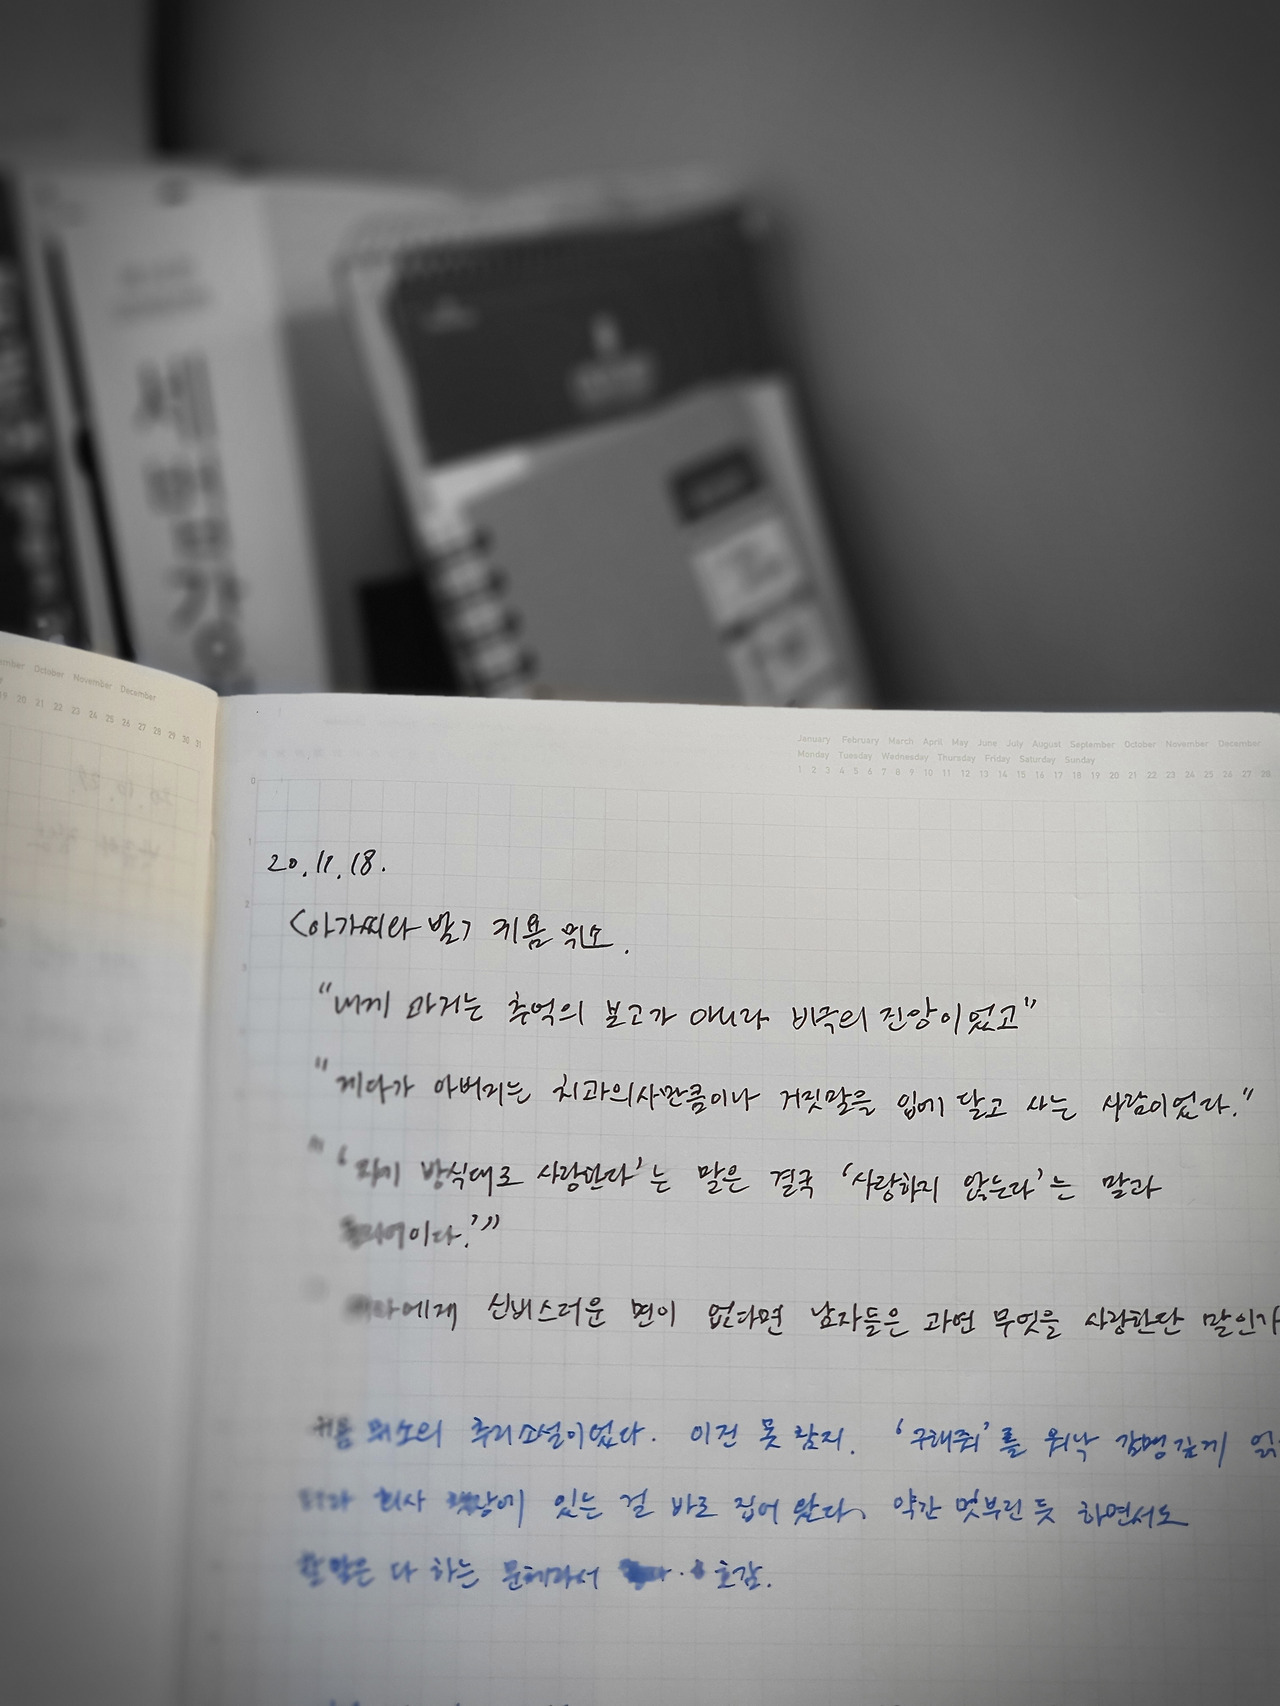 세법강
October November December
19 20 21 22 23 24 25 26 27 28 29 30 31
January February March April May June July August September October November December
Monday Tuesday Wednesday Thursday Friday Saturday Sunday
1 2 3 4 5 6 7 8 9 10 11 12 13 14 15 16 17 18 19 20 21 22 23 24 25 26 27 28
20.11.18.
<아가씨와 밤> 기욤 뮈소.
"내게 과거는 추억의 보고가 아니라 비극의 진앙이었고"
"게다가 아버지는 치과의사만큼이나 거짓말을 입에 달고 사는 사람이었다."
"'자기 방식대로 사랑한다'는 말은 결국 '사랑하지 않는다'는 말과
동의어이다.'"
에게 신비스러운 면이 없다면 남자들은 과연 무엇을 사랑한단 말인가
기욤 뮈소의 추리소설이었다. 이건 못 참지. '구해줘'를 워낙 감명깊게
회사 책장에 있는 걸 바로 집어 왔다. 약간 멋부린 듯 하면서도
할 말은 다 하는 문체라서 호감.